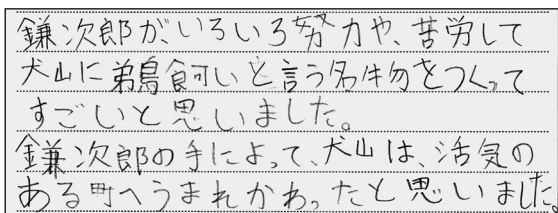 鎌次郎が、いろいろ努力や、苦労して
犬山に弟鳥飼いと言う名物をつくって
すごいと思いました。
鎌次郎の手によって、犬山は、活気の
ある町へうまれかわったと思いました。